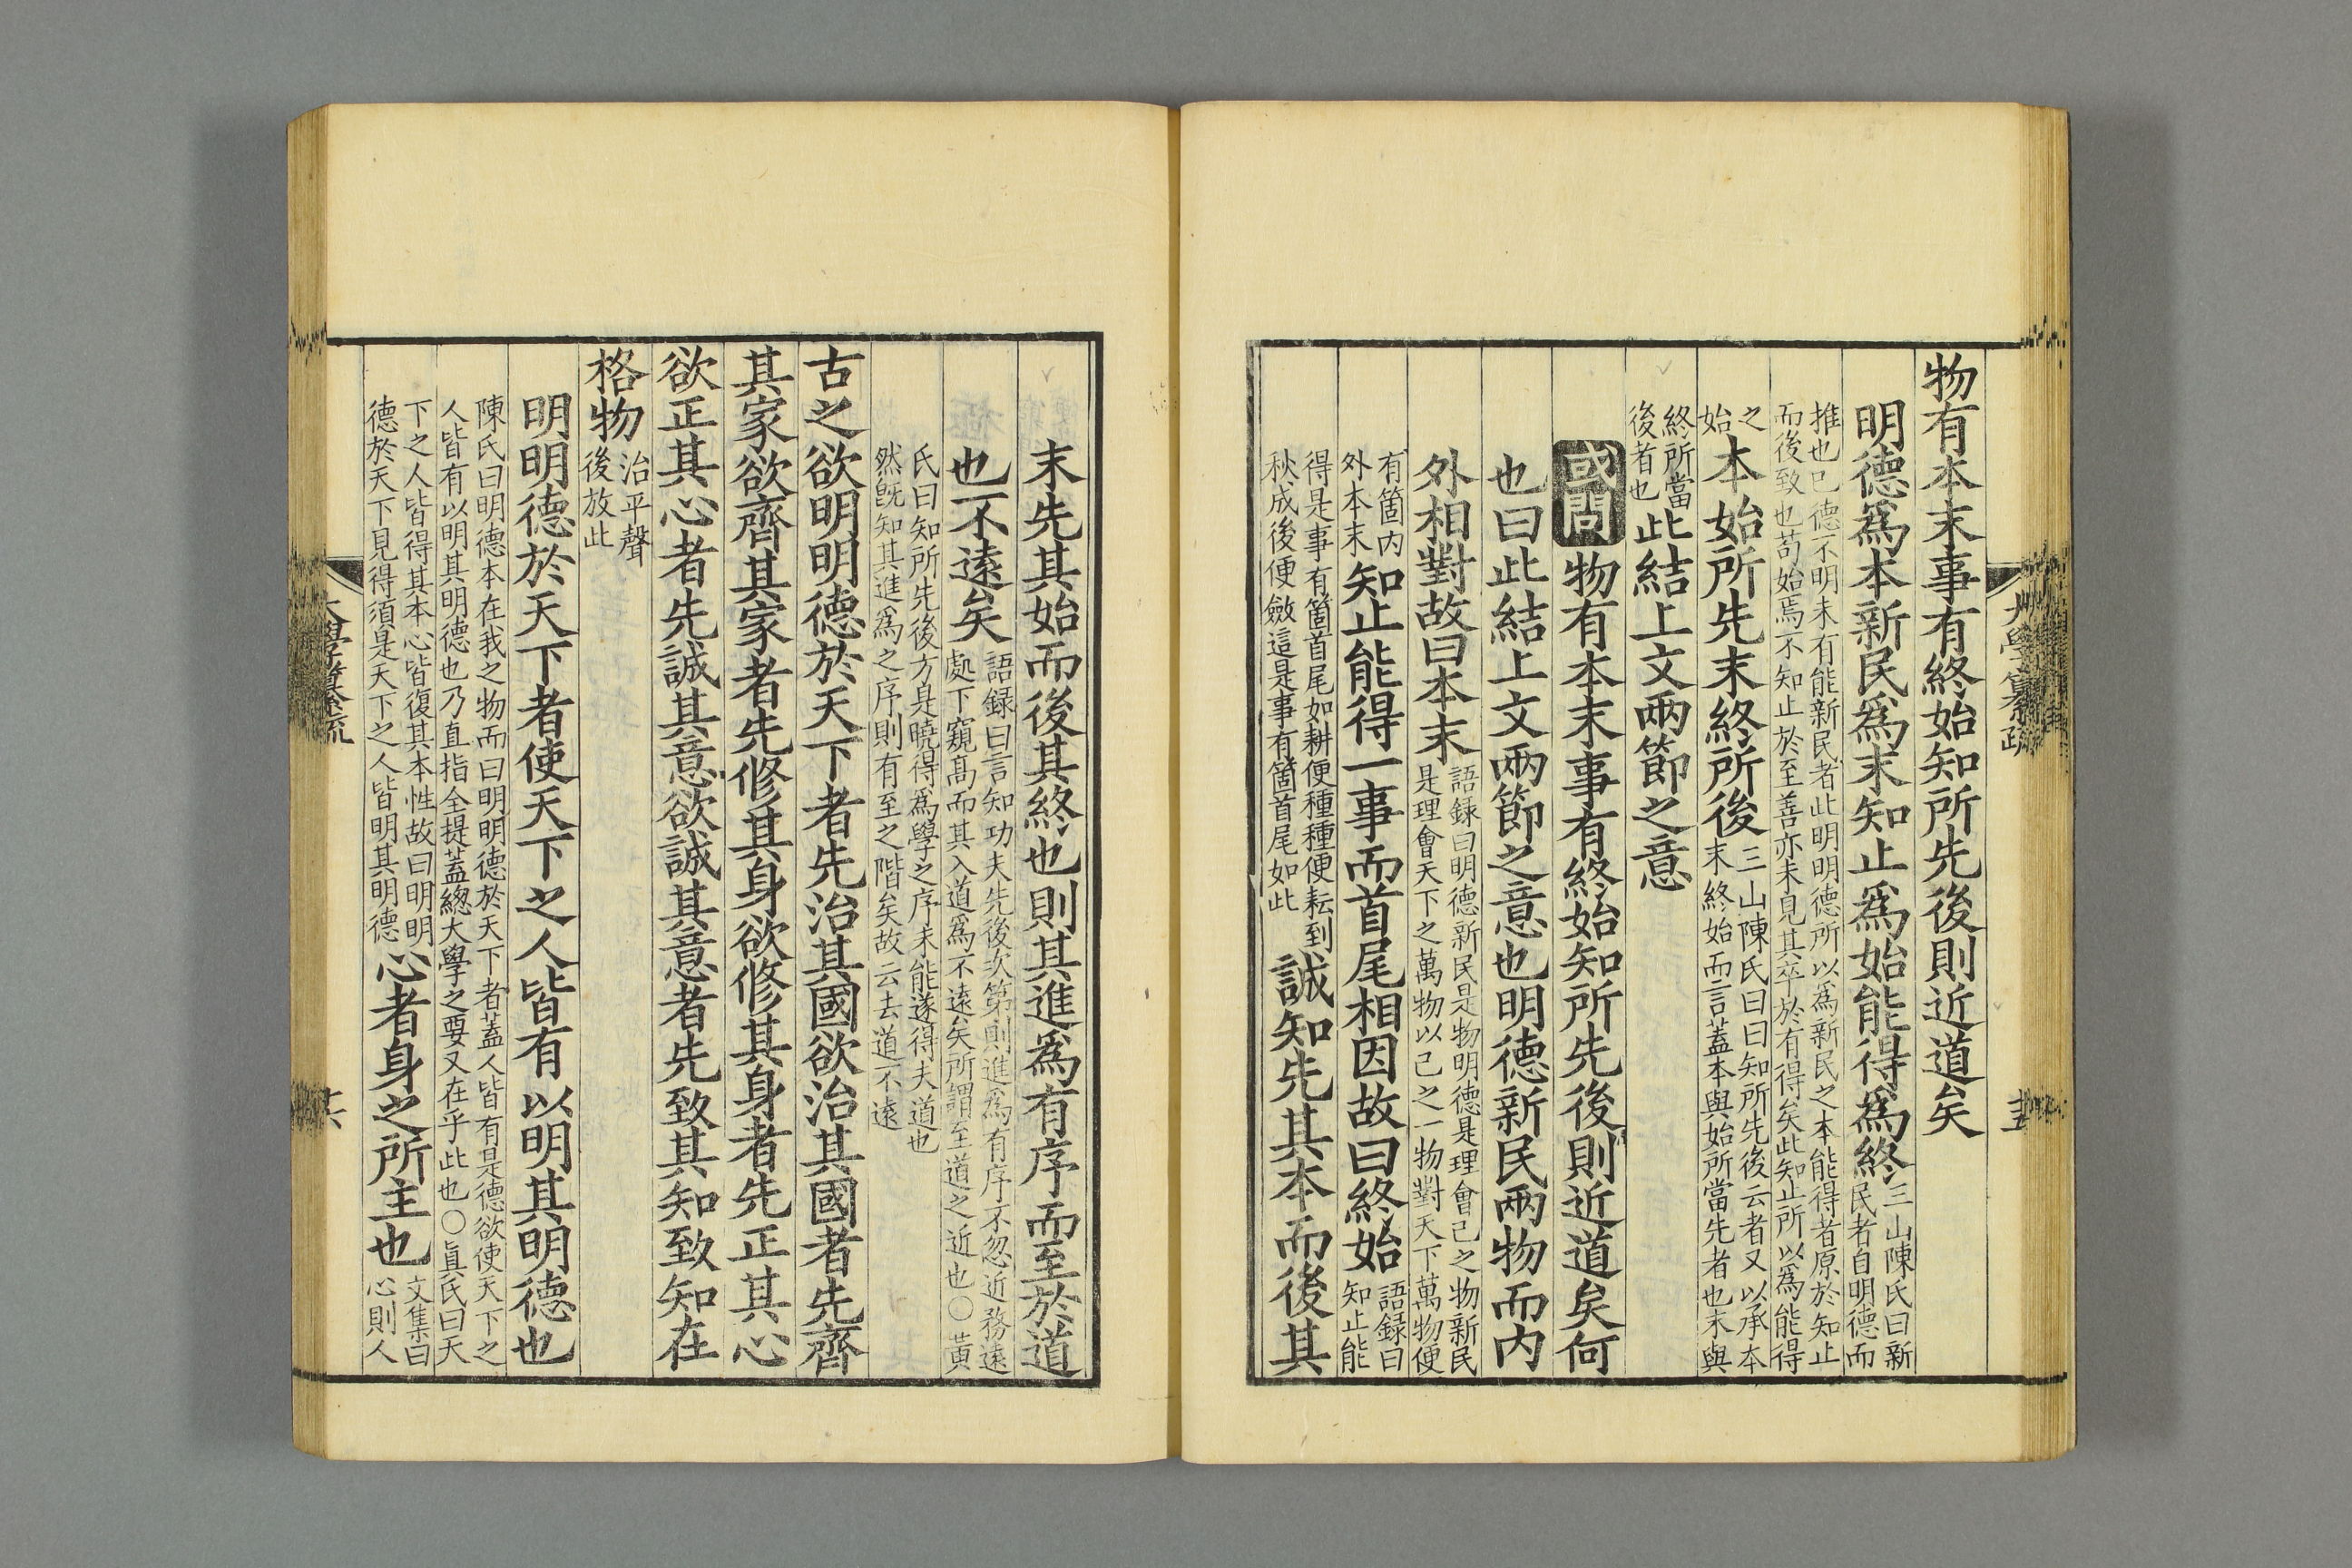 大學纂疏
物有本末事有終始知所先後則近道矣
明德爲本新民爲末知止爲始能得爲終
三山陳氏曰新
民者自明德而
推也己德不明未有能新民者此明明德所以爲新民之本能得者原於知止
而後致也苟始焉不知止於至善亦未見其卒於有得矣此知止所以爲能得
之
始
本始所先末終所後
三山陳氏曰曰知所先後云者又以承本
末終始而言蓋本與始所當先者也末與
終所當
後者也
此結上文兩節之意
或問
物有本末事有終始知所先後則近道矣何
也曰此結上文兩節之意也明德新民兩物而内
外相對故曰本末
語録曰明德新民是物明德是理會己之物新民
是理會天下之萬物以己之一物對天下萬物便
有箇内
外本末
知止能得一事而首尾相因故曰終始
語録曰
知止能
得是事有箇首尾如耕便種種便耘到
秋成後便斂這是事有箇首尾如此
誠知先其本而後其
末先其始而後其終也則其進爲有序而至於道
也不遠矣
語録曰言知功夫先後次第則進爲有序不忽近務遠
處下窺高而其入道爲不遠矣所謂至道之近也○黄
氏曰知所先後方是曉得爲學之序未能遂得夫道也
然旣知其進爲之序則有至之階矣故云去道不遠
古之欲明明德於天下者先治其國欲治其國者先齊
其家欲齊其家者先修其身欲修其身者先正其心
欲正其心者先誠其意欲誠其意者先致其知致知在
格物
治平聲
後放此
明明德於天下者使天下之人皆有以明其明德也
陳氏曰明德本在我之物而曰明明德於天下者蓋人皆有是德欲使天下之
人皆有以明其明德也乃直指全提蓋總大學之要又在乎此也○眞氏曰天
下之人皆得其本心皆復其本性故曰明明
德於天下見得須是天下之人皆明其明德
心者身之所主也
文集曰
心則人
大學纂疏